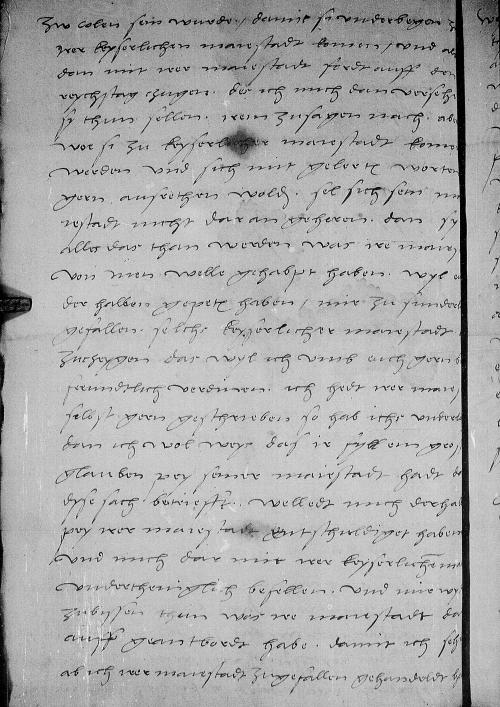 zw colen sein wurde / damit si underwegen z
irer keyserlichen maiestadt komen / und al
dan mit irer maiestadt ferdt auff den
reychstag zugen. der ich mich dan verseh
sy thun sellen. irem zusagen nach. abe
wor si zu keyserlicher maiestadt kome
werden und sich mit gelertx worten
gern ausrethen wold. sel sich sein m
iestadt nicht dar an geheren. dan sy
alles das than werden was ire maies
von inen welle gehabpt haben. wyl e
der halben gepetx haben / mir zu sunderl
gefallen. selchs keyserlicher maiestadt
zucheygen das wyl ich umb euch gern
freundtlich verdinen. ich hedt irer maies
selbst gern geschrieben so hab ichs underl
dan ich wol weys das ir syllein gros
glauben pey seiner maiestadt hadt d
dyse sach betriefft. welledt mich derhal
pey irer maiestadt entschuldiget haben
und mich dar mit irer keyserlichen m
undertheniglich befellen. und mir wy
zuwissen thun was ire maiestadt dar
auff geantbordt habe. damit ich seh
ab ich irer maiestadt zugefallen gehandeldt h